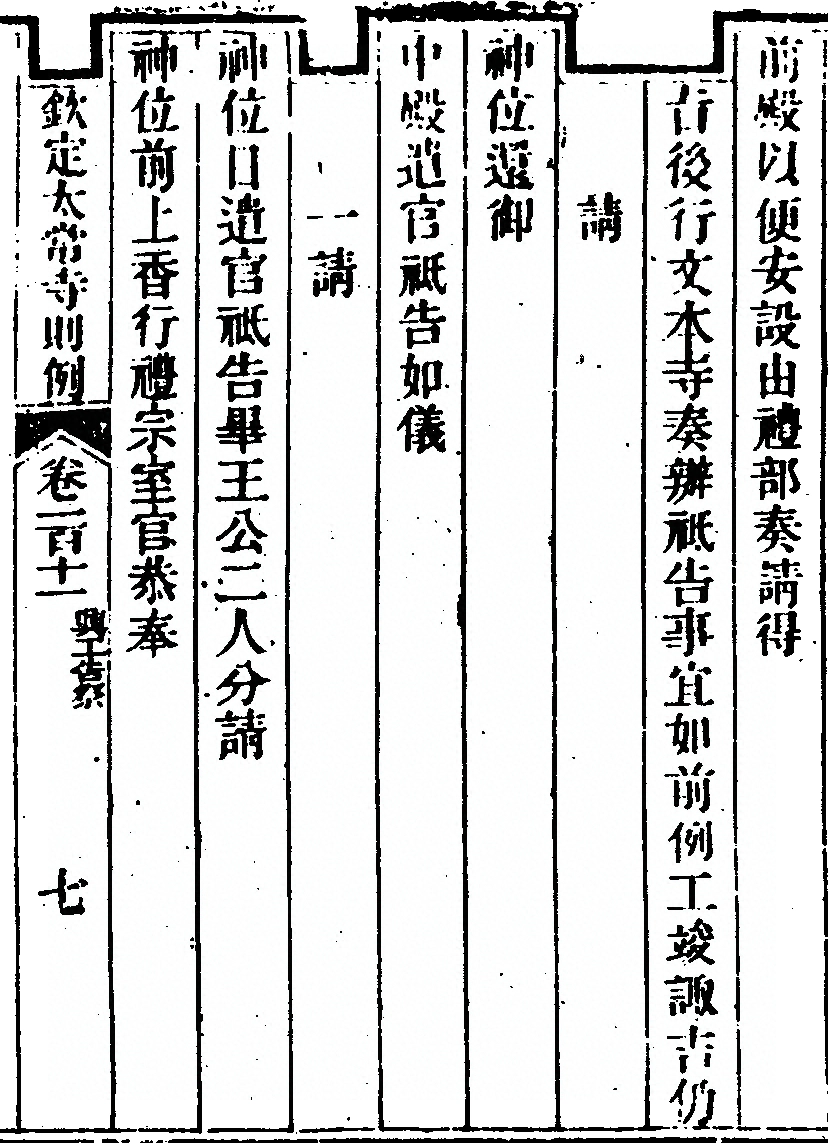 前殿以便安設由禮部奏請得
旨後行文本寺奏辦祗告事宜如前例工竣諏吉仍
請
神位還御
中殿遣官祗告如儀
一請
神位日遣官祗告畢王公二人分請
神位前上香行禮宗室官恭奉
欽定太常寺則例 卷二百十一 興工告祭 七